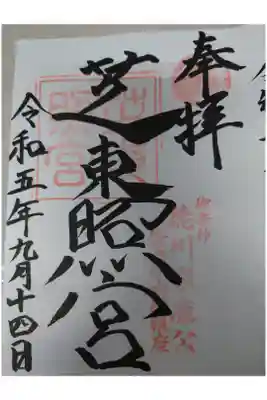 奉拝
芝東照宮
令和五年九月十四日